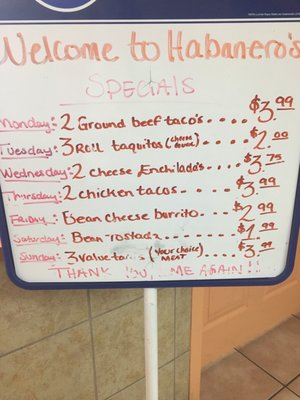 Welcome to Habanero's
SPECIALS
Monday: 2 Ground beef taco's.... $3.99
Tuesday: 3 Roll taquitos (cheese ).... $2.00
Wednesday: 2 cheese Enchilada's.... $3.75
Thursday: 2 chicken tacos.... $3.99
Friday: Bean cheese burrito... $2.99
Saturday: Bean Tostada... $1.99
Sunday: 3 Value (your choice MEAT).... $3.99
THANK ME AGAIN!!!